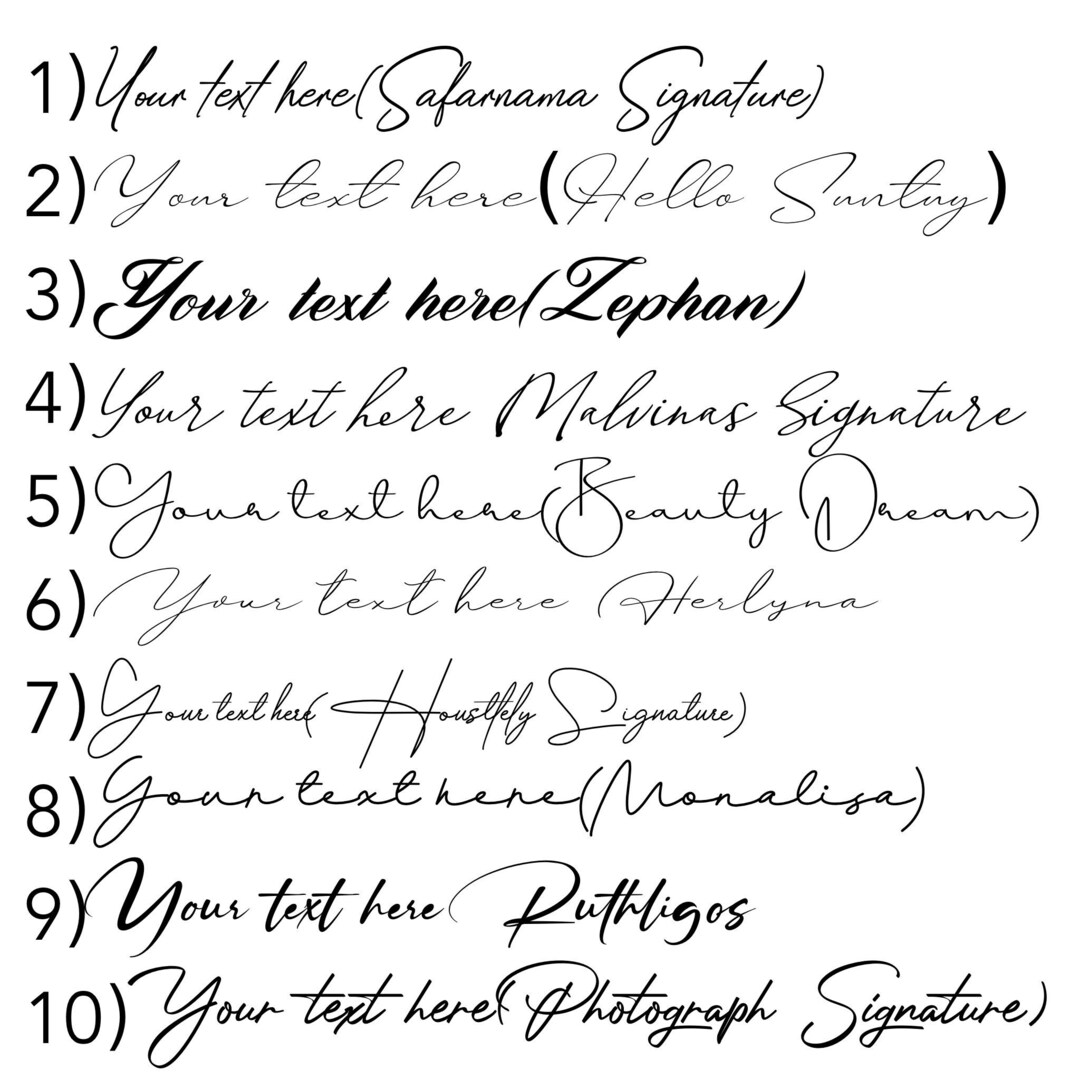 1) Your text here(Safarnama Signature)
2) Your text here(Hello Suntuy)
3) Your text here(Zephan)
4) Your text here Malvinas Signature
5) Your text here(Beauty Dream)
6) Your text here Herlyna
7) Your text here( Housttely Signature)
8) Your text here(Monalisa)
9) Your text here Ruthligos
10) Your text here(Photograph Signature)